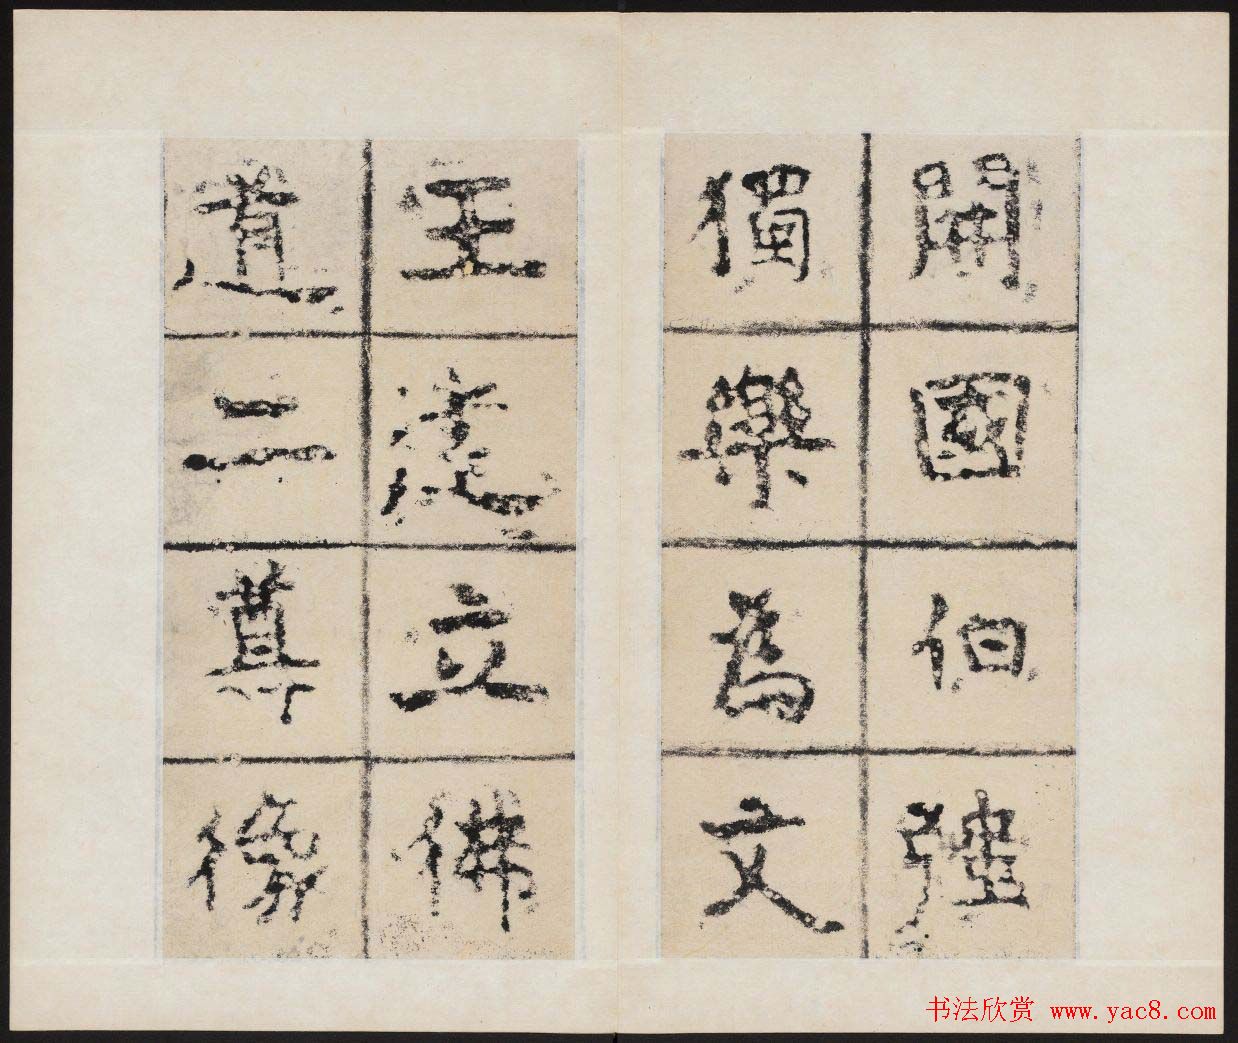 開國伯強
獨樂為文
王建立佛
道二尊像
书法欣赏 www.yac8.com